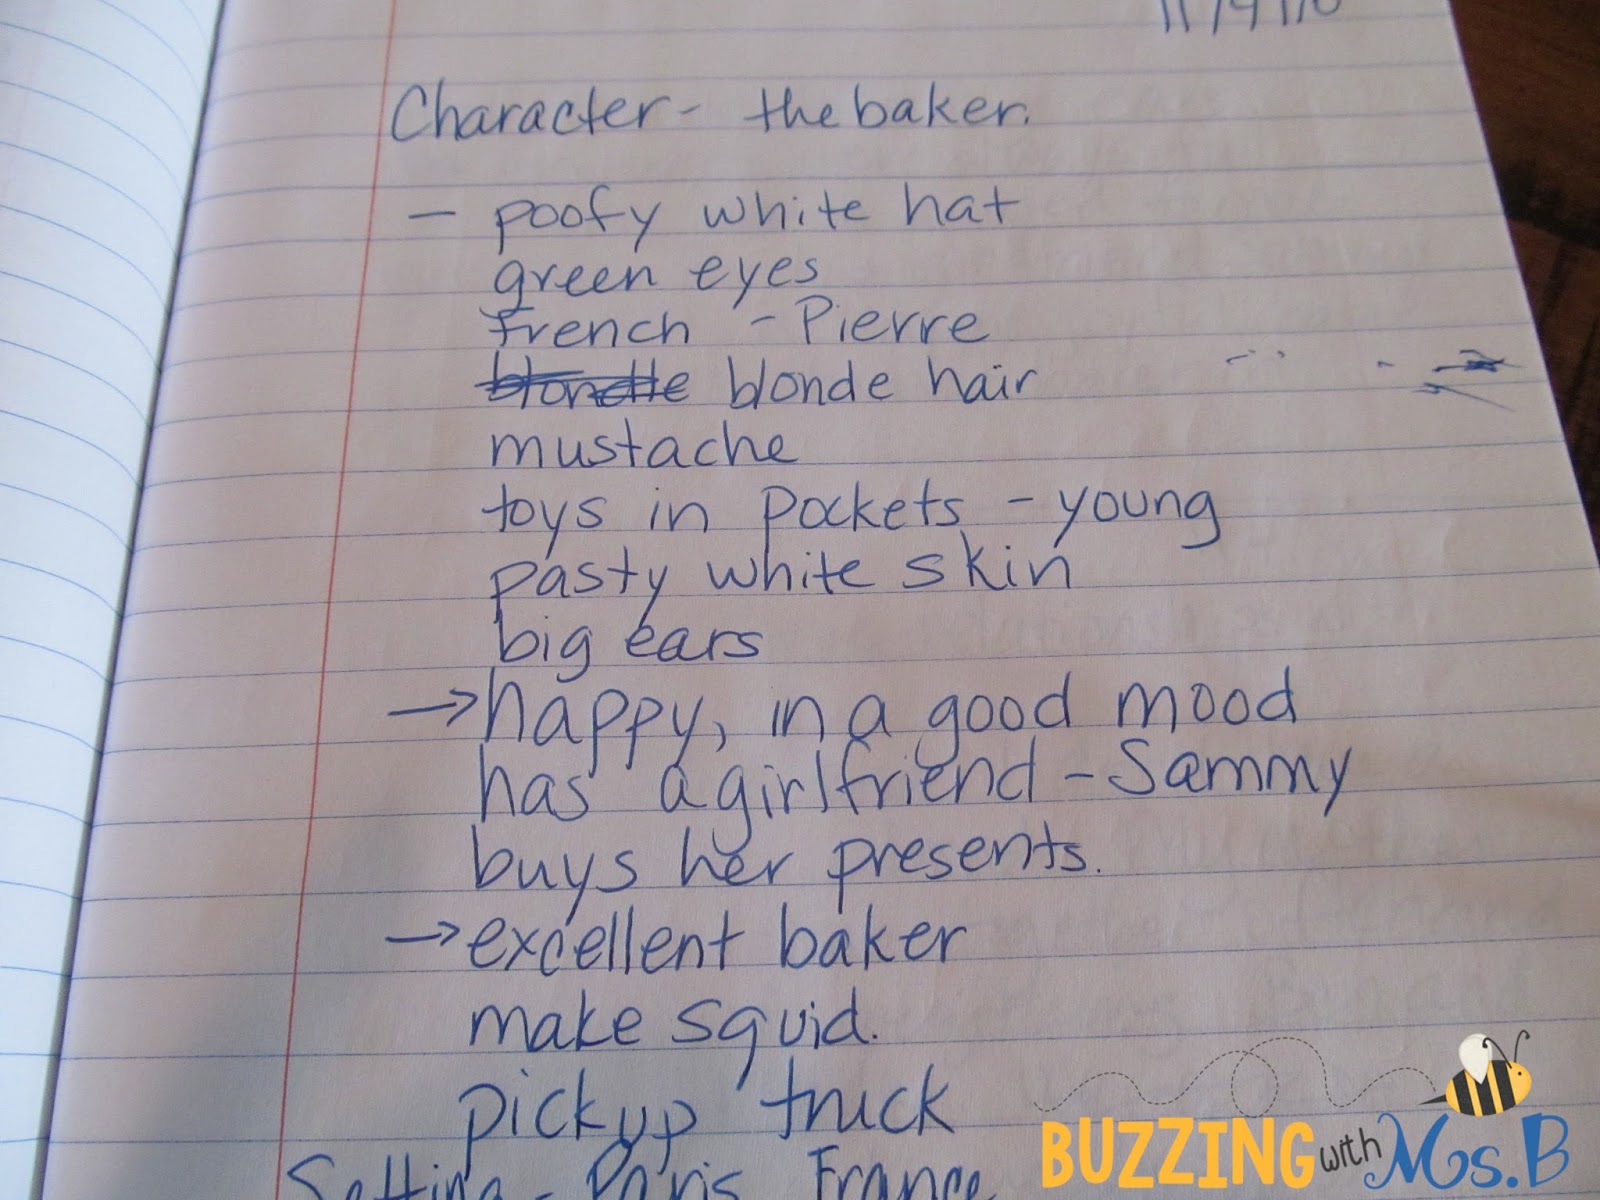 Character - the baker.
- poofy white hat
green eyes
french - Pierre
blonde hair
mustache
toys in pockets - young
pasty white skin
big ears
→ happy, in a good mood
has a girlfriend - Sammy
buys her presents.
→ excellent baker
make squid.
pickup truck
Setting - Paris, France
BUZZING with Ms. B